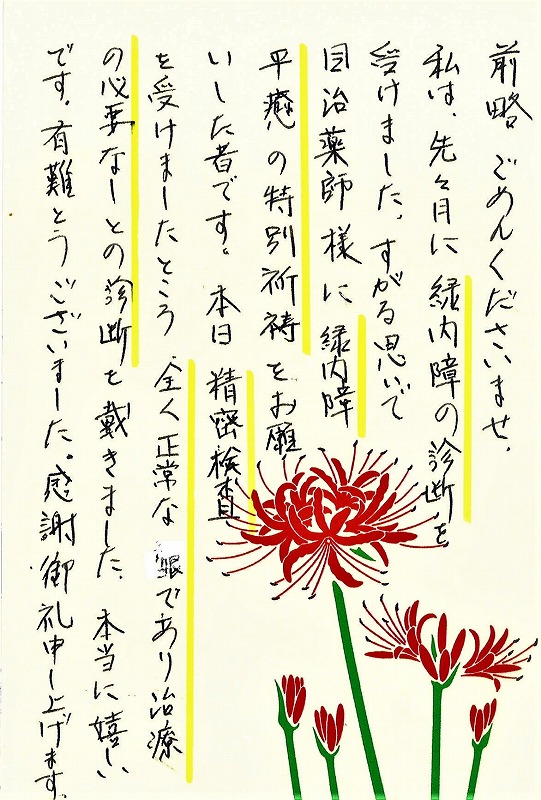 前略 ごめんくださいませ。
私は、先々月に緑内障の診断を
受けました。すがる思いで
目治薬師様に緑内障
平癒の特別祈祷をお願
いした者です。本日精密検査
を受けましたところ 全く正常な眼であり治療
の必要なしとの診断を戴きました。本当に嬉しい
です。有難とうございました。感謝御礼申し上げます。